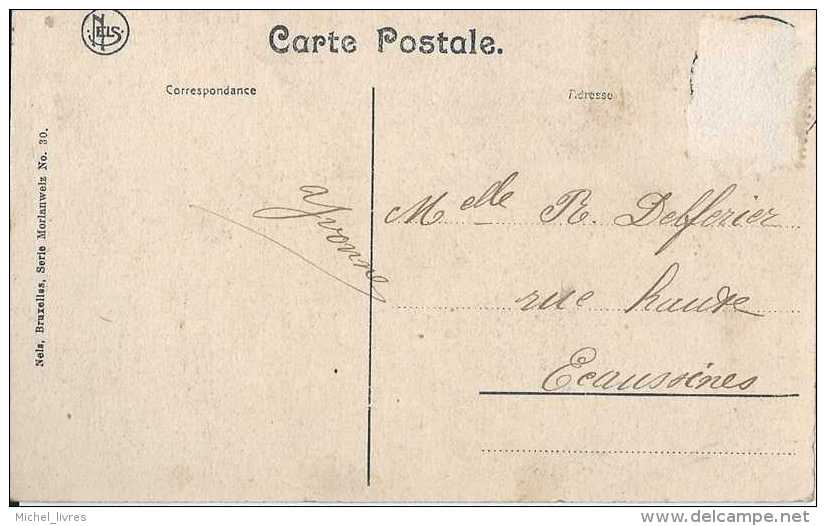 NELS
Carte Postale.
Correspondance
Adresse
Nels, Bruxelles, Serie Morlanwelz No. 30.
Yvonne
Melle R. Delferier
rue haute
Ecaussines
Michel_livres
delcampe.net